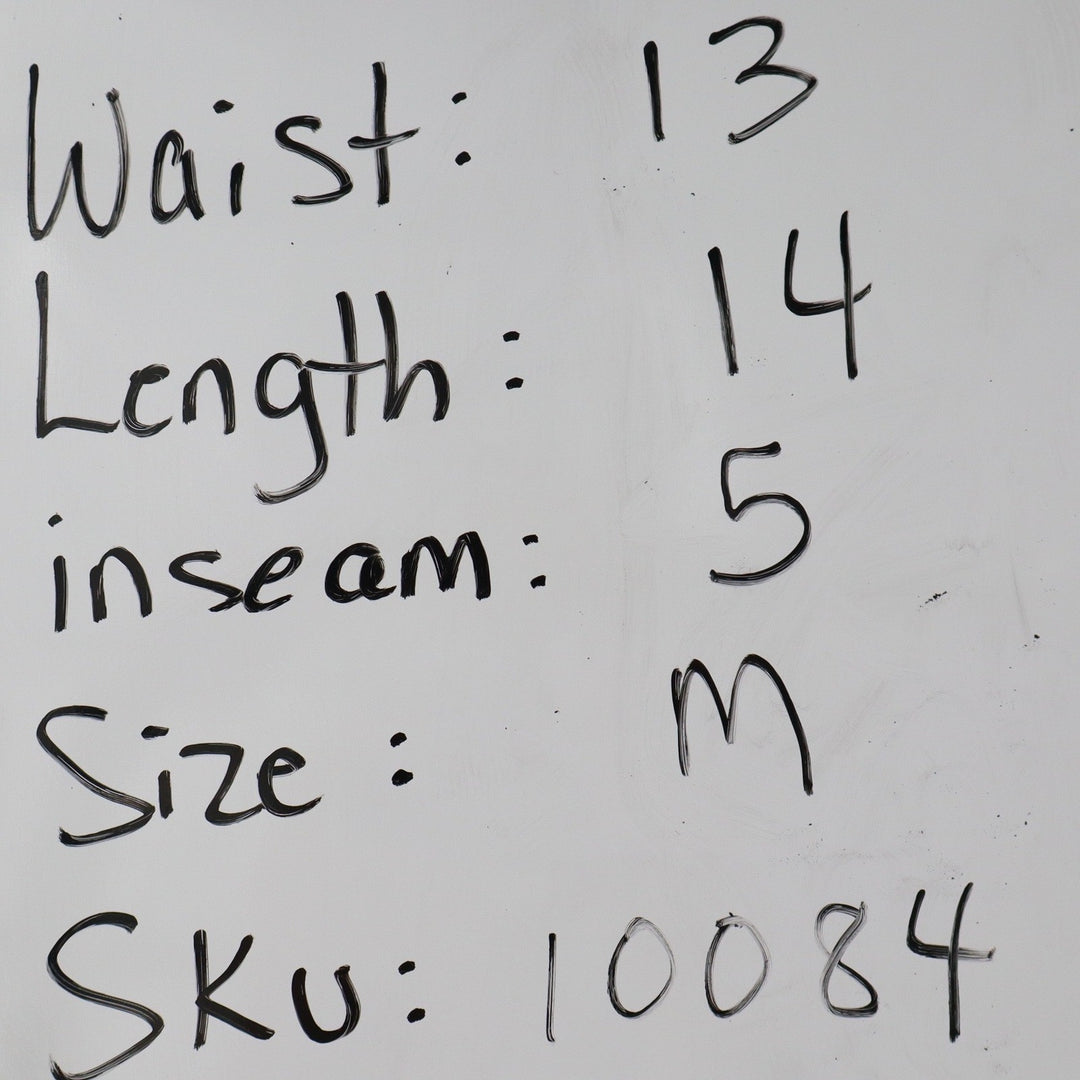 Waist: 13
Length: 14
inseam: 5
Size: M
SKU: 10084